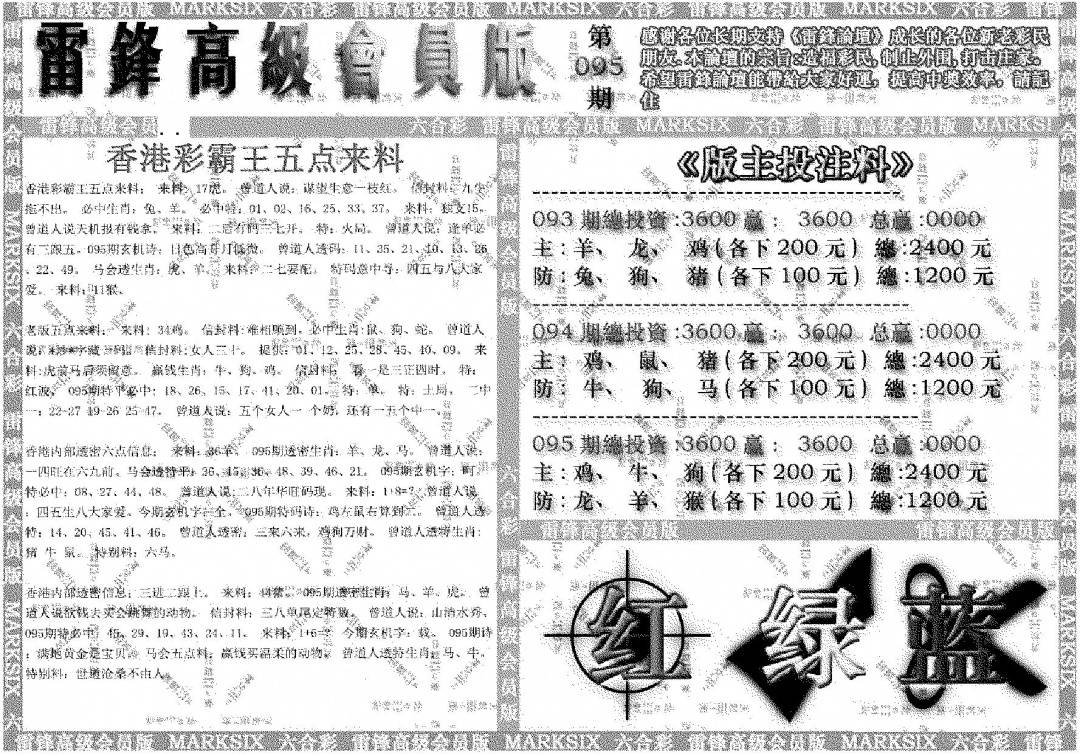 雷鋒高級會員版
第
095
期
感谢各位长期支持《雷鋒論壇》成长的各位新老彩民
朋友.本論壇的宗旨:造福彩民,制止外围,打击庄家.
希望雷鋒論壇能帶給大家好運，提高中奖效率，請記
住
香港彩霸王五点来料
香港彩霸王五点来料： 来料：17虎。 曾道人说：谋望生意一枝红。 信封料：九牛
拖不出。 必中生肖：兔、羊。 必中特：01、02、16、25、33、37。 来料：独支15。
曾道人说天机报有钱拿。 来料：二后有码三七开。 特：火局。 曾道人说：逢单必
有三跟五。095期玄机诗：日色高升月低微。 曾道人透码：11、35、21、10、13、26
、22、49。 马会透生肖：虎、羊。 来料：二七要配。 特码意中寻：四五与八大家
爱。 来料：11猴。
老版五点来料： 来料：34鸡。 信封料:难相顾到。必中生肖:鼠、狗、蛇。 曾道人
信封料:女人三十。 提供：01、12、25、28、45、40、09。 来
料:虎前马后须留意。 赢钱生肖：牛、狗、鸡。 信封料： 看一是三正四时。 特：
红波。 095期特平必中：18、26、15、17、41、20、01。 特：单。 特：土局。 二中
一：22-27 49-26 25-47。 曾道人说：五个女人一个奶，还有一五个中一。
香港内部透密六点信息： 来料：36羊。 095期透密生肖：羊、龙、马。 曾道人说：
一四旺在六九前。马会透特平：26、45、36、48、39、46、21。 095期玄机字：
特必中：08、27、44、48。 曾道人说:二八年华旺码现。 来料：1+8=? 曾道人说
：四五生八大家爱。今期玄机字：全。 095期特码诗：鸡左鼠右算到 曾道人透
特：14、20、45、41、46。 曾道人透密：三来六来，鸡狗万财。 曾道人透特生肖：
猪 牛 鼠。 特别料：六马。
香港内部透密信息：三进二跟上。 来料： 095期透密生肖：马、羊、虎。 曾
道人说欲钱去买会跳舞的动物。 信封料：三八单尾定特数。 曾道人说：山清水秀。
095期特必中：45、29、19、43、24、11。 来料：1+6=? 今期玄机字：载。 095期诗
：满地黄金是宝贝。马会五点料：赢钱买温柔的动物。 曾道人透特生肖：马、牛。
特别料：世道沧桑不由人。
《版主投注料》
093期總投資:3600赢： 3600 总赢:0000
主:羊、 龙、 鸡(各下200元) 總:2400元
防:兔、 狗、 猪(各下100元) 總:1200元
094期總投資:3600赢： 3600 总赢:0000
主: 鸡、 鼠、 猪(各下200元) 總:2400元
防:牛、 狗、 马(各下100元) 總:1200元
095期總投資:3600赢： 3600 总赢:0000
主:鸡、 牛、 狗(各下200元) 總:2400元
防:龙、 羊、 猴(各下100元) 總:1200元
红 绿 蓝
雷锋高级会员版 MARKSIX 六合彩 雷锋高级会员版 MARKSIX 六合彩 雷锋高级会员版 MARKSIX